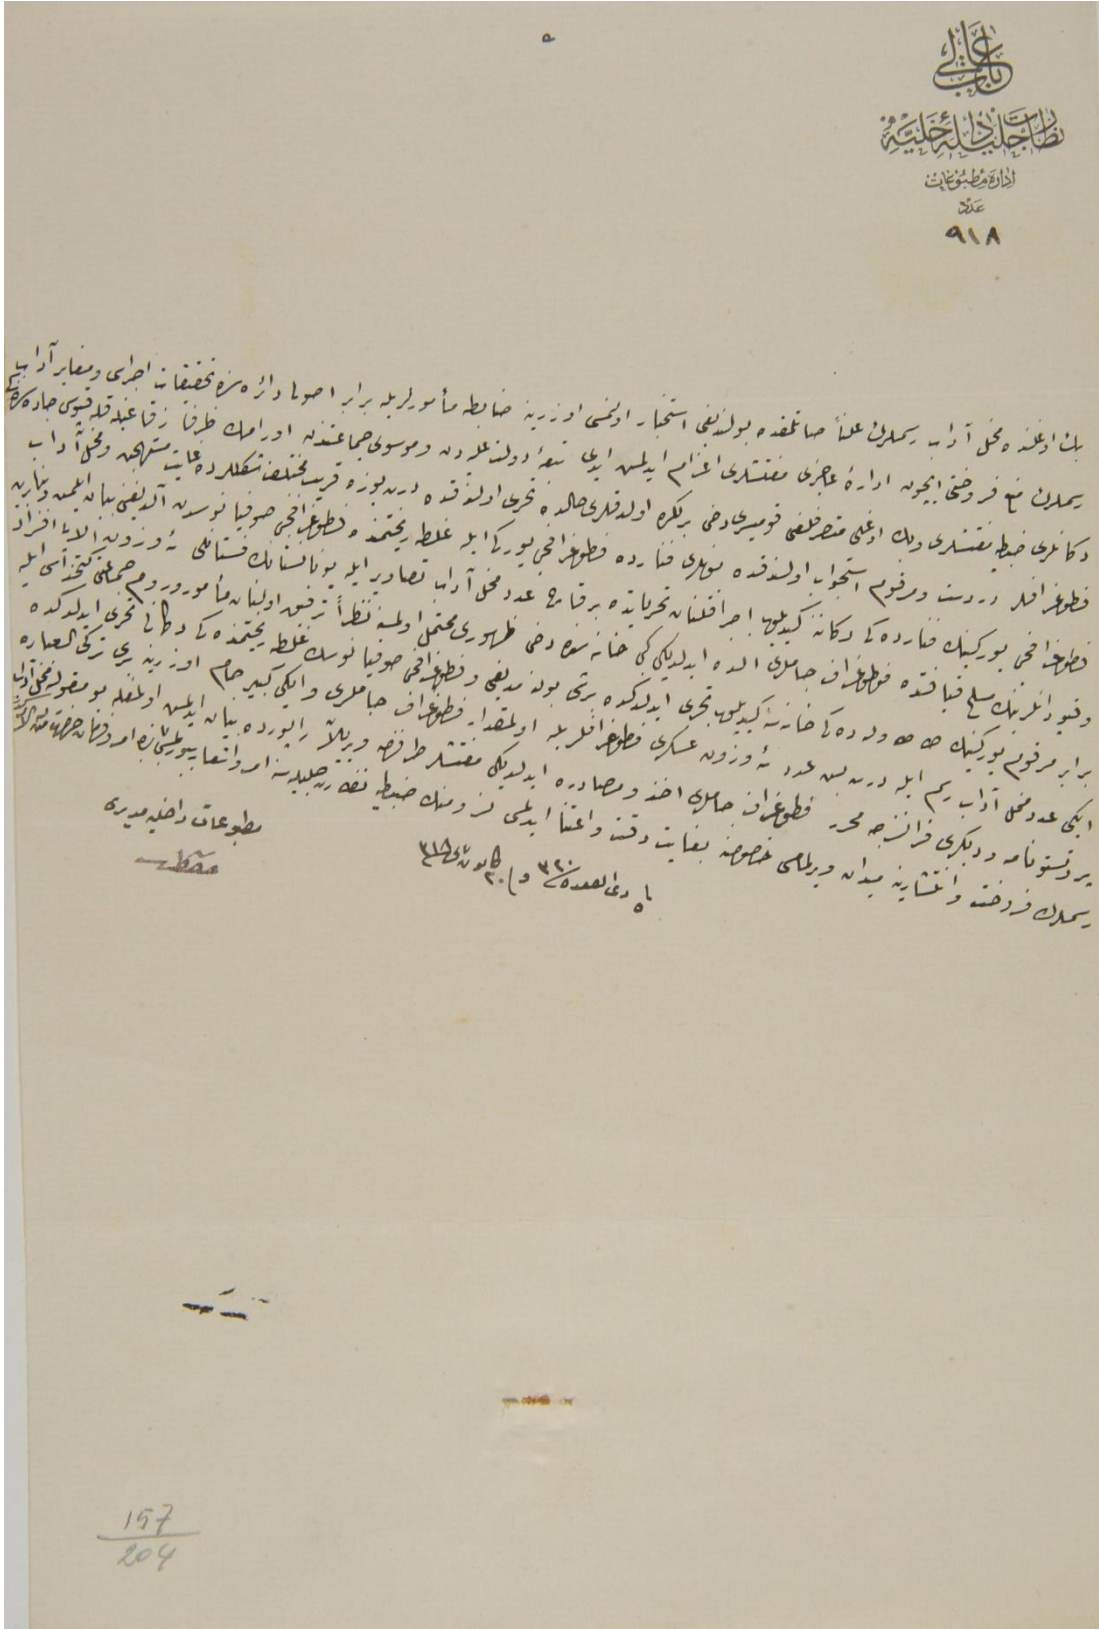 ٥
باب عالی
نظارت جلیلهٔ داخلیه
ادارهٔ مطبوعات
عدد
٩١٨
بك اوغلنده مخل آداب رسملرك علناً صاتلمقده بولندیغی استخبار اولنمسی اوزرینه ضابطه مأمورلریله برابر اصولا دائره سنده تحقیقات اجراسی ومغایر آداب
رسملرك منع فروختی ایچون ادارهٔ عاجزی مفتشلری اعزام ایدلمش ایدی تبعهٔ دولت علیه دن وموسوی جماعتندن
دکانلری ضبطیه مفتشلری وبك اوغلی متصرفلغی قومیسری دخی برلکده اولدقلری حالده تحری اولندقده درت یوزه قریب مختلف شکللرده غایت مستهجن ومخل آداب
فطوغرافلر دردست ومرقوم استجواب اولندقده فنارده فطوغرافجی یورکی ایله غلطه ریختمنده فطوغرافجی صوفیانوسدن آلدیغنی بیان ایلمش
فطوغرافجی یورکینك فنارده کی دکاننه کیدیلوب اجرا قلنان تحریاتده برقاچ عدد مخل آداب تصاویر ایله یونانستانك
فطوغراف جاملری الده ایدلدیکی کبی خانه سنده دخی ظهوری محتمل اولمسنه نظراً ترفیق اولنان مأمور وروم جماعتی
برابر مرقوم یورکینك خانه سنه کیدیلوب تحری ایدلدکده برشی بولنمدیغی وفطوغرافجی صوفیانوسك غلطه ریختمنده کی دکانی تحری ایدلدکده
ایکی عدد مخل آداب رسم ایله فطوغرافلریله اولمقدار فطوغراف جاملری وایکی کبیر جام اوزرینه بری ترکی العباره
پروتستونامه ودیکری فرانسزجه محرر فطوغراف جاملری اخذ ومصادره ایدلدیکی مفتشلر طرفندن ویریلان راپورده بیان ایدلمش اولمغله بو مقوله مخل آداب
رسملرك فروخت وانتشارینه میدان ویرلمامسی خصوصنه بغایت دقت واعتنا ایدلمسی لزومنك ضبطیه نظارت جلیله سنه امر واشعار بیورلمسی بابنده امر وفرمان حضرت من له الامرکدر
فی ٥ ذی القعده ٣٢٠ و فی ٢٠ کانون ثانی ٣١٨
مطبوعات داخلیه مدیری
157
204